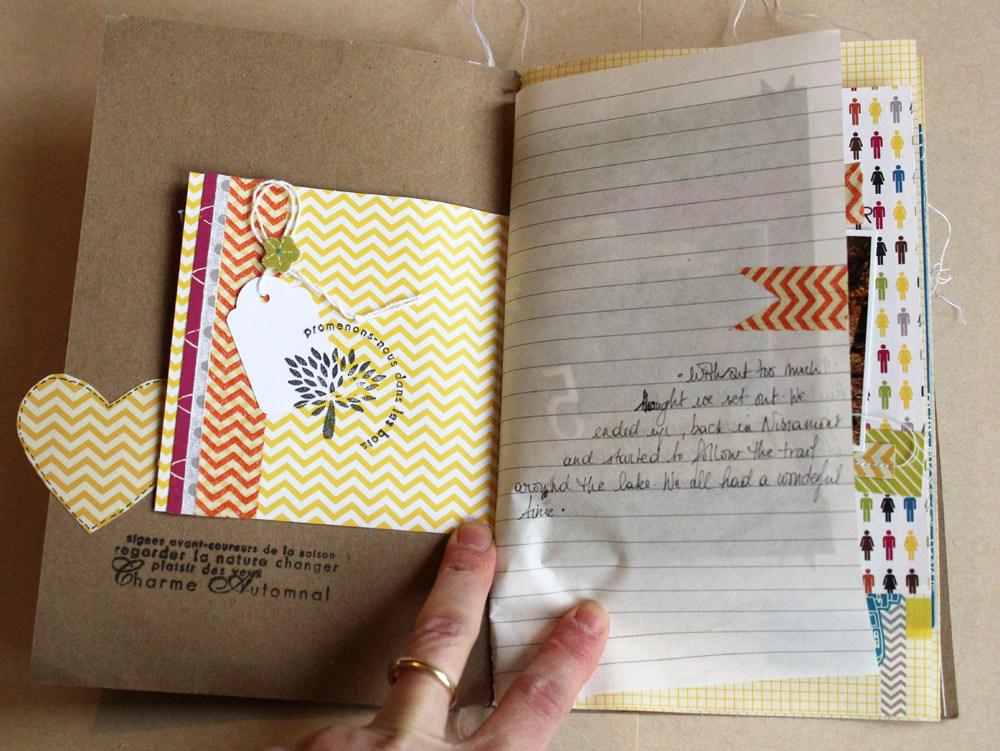 promenons-nous dans les bois
signes avant-coureurs de la saison
regarder la nature changer
plaisir des yeux
Charme Automnal
R
5
. Without too much
thought we set out. We
ended up, back in Nisramont
and started to follow the trail
around the lake. We all had a wonderful
time.